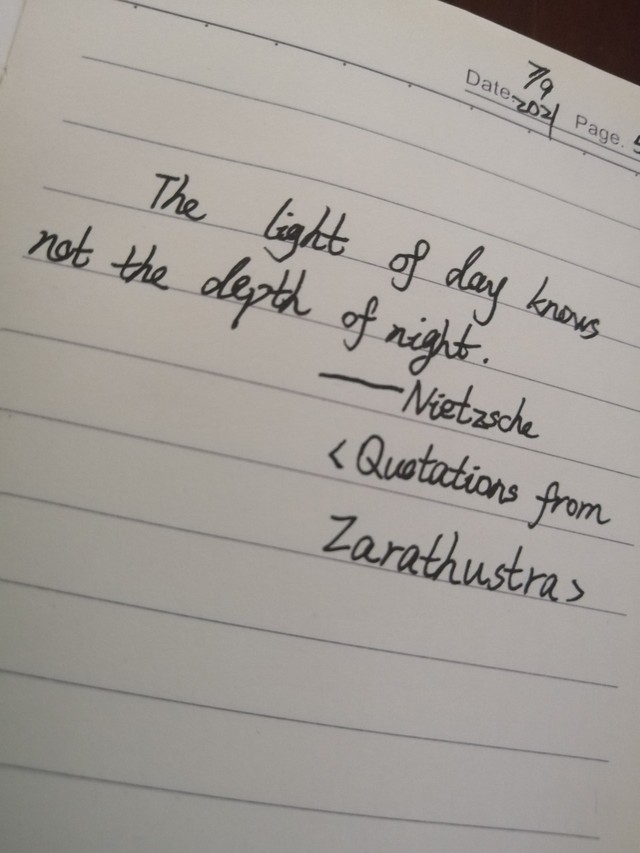 Date. 7/9
2021 Page. 5
The light of day knows
not the depth of night.
——Nietzsche
<Quotations from
Zarathustra>